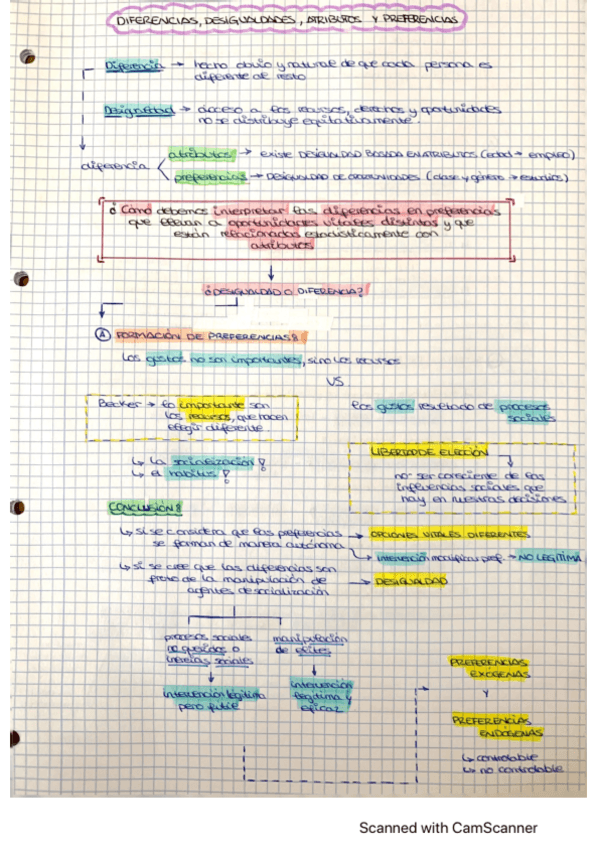 DIFERENCIAS, DESIGUALDADES, ATRIBUTOS Y PREFERENCIAS
Diferencia → hecho obvio y natural de que cada persona es
diferente al resto
Desigualdad → acceso a los recursos, derechos y oportunidades
no se distribuye equitativamente.
diferencia
atributos → EXISTE DESIGUALDAD BASADA EN ATRIBUTOS (edad → empleo)
preferencias → DESIGUALDAD DE OPORTUNIDADES (clase y género → estudios)
¿Cómo debemos interpretar las diferencias en preferencias
que llevan a oportunidades vitales distintas y que
están relacionadas estadísticamente con
atributos
¿DESIGUALDAD O DIFERENCIA?
A FORMACIÓN DE PREFERENCIAS:
Los gustos no son importantes, sino los recursos
VS
Becker → lo importante son
los recursos, que hacen
elegir diferente
los gustos resultado de procesos
sociales
↳ la socialización!
↳ el habitus!
LIBERTAD DE ELECCIÓN
no ser consciente de las
influencias sociales que
hay en nuestras decisiones
CONCLUSIÓN:
↳ si se considera que las preferencias
se forman de manera autónoma
→ OPCIONES VITALES DIFERENTES
↳ intervención modificar pref. → NO LEGÍTIMA
↳ si se cree que las diferencias son
fruto de la manipulación de
agentes de socialización
→ DESIGUALDAD
procesos sociales
no queridos o
inercias sociales
manipulación
de élites
intervención legítima
pero fútil
intervención
legítima y
eficaz
PREFERENCIAS
EXÓGENAS
Y
PREFERENCIAS
ENDÓGENAS
↳ controlable
↳ no controlable
Scanned with CamScanner